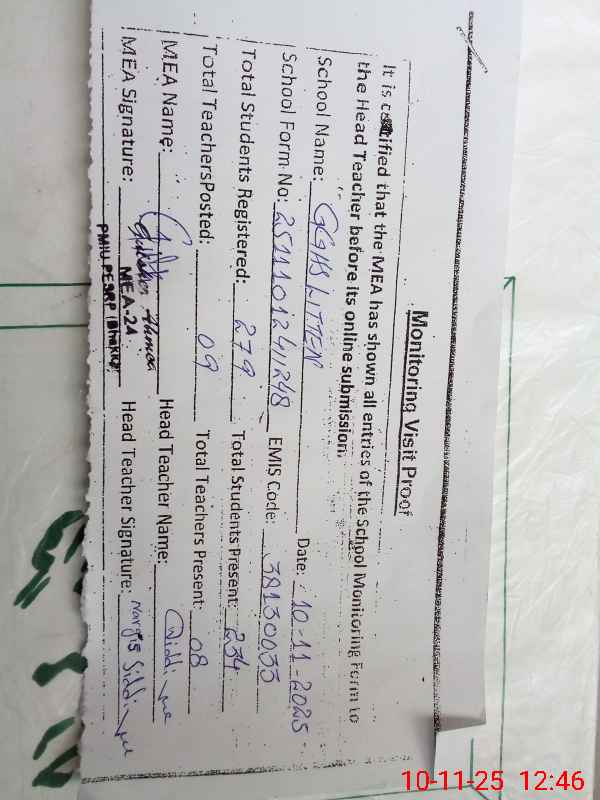 Monitoring Visit Proof
It is certified that the MEA has shown all entries of the School Monitoring Form to
the Head Teacher before its online submission.
School Name: GGHS LITTEN Date: 10-11-2025
School Form No: EMIS Code: 38130033
Total Students Registered: 279 Total Students Present: 234
Total TeachersPosted: 09 Total Teachers Present: 08
MEA Name: Head Teacher Name:
MEA Signature: MEA-24 Head Teacher Signature: Nargis Siddique
PMIU-PESRP (Bhakkar)
10-11-25 12:46